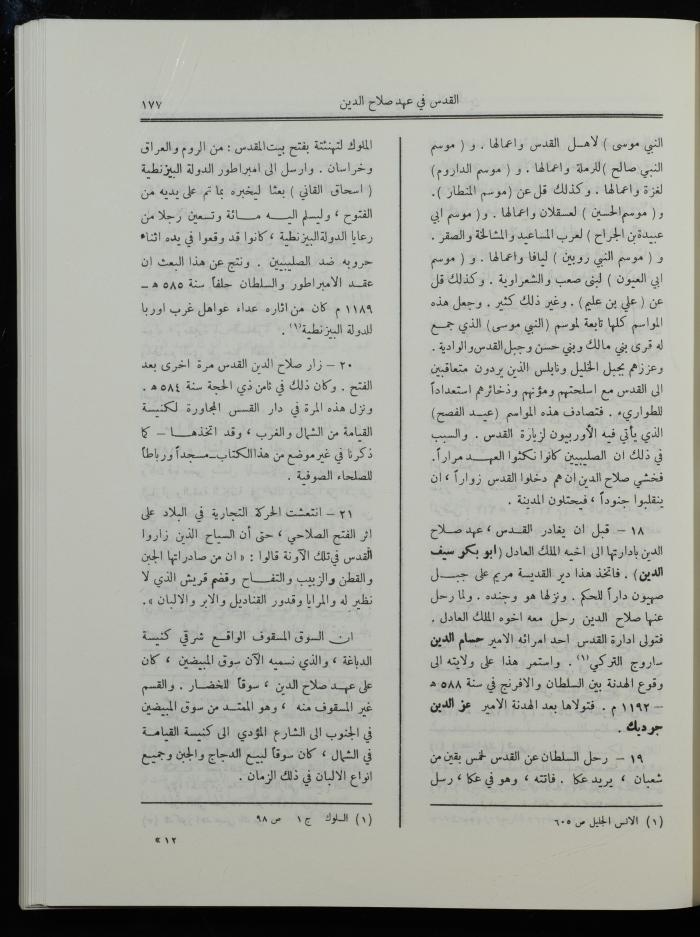 القدس في عهد صلاح الدين
١٧٧
النبي موسى ) لاهل القدس واعمالها . و ( موسم
النبي صالح ) للرملة واعمالها . و ( موسم الداروم)
لغزة واعمالها . وكذلك قل عن (موسم المنطار ).
و ( موسم الحسين ) لعسقلان واعمالها . و ( موسم ابي
عبيدة بن الجراح ) لعرب المساعيد والمشالخة والصقر .
و ( موسم النبي روبين ) ليافا واعمالها . و ( موسم
ابي العيون ) لبنى صعب والشعراوية . وكذلك قل
عن ( علي بن عليم ) . وغير ذلك كثير . وجعل هذه
المواسم كلها تابعة لموسم (النبي موسى) الذي جمع
له قرى بني مالك وبني حسن وجبل القدس والوادية .
وعززهم بجبل الخليل ونابلس الذين يردون متعاقبين
الى القدس مع اسلحتهم ومؤنهم وذخائرهم استعداداً
للطواريء . فتصادف هذه المواسم (عيد الفصح)
الذي يأتي فيه الأوربيون لزيارة القدس . والسبب
في ذلك ان الصليبيين كانوا نكثوا العهد مراراً.
فخشي صلاح الدين ان هم دخلوا القدس زواراً ، ان
ينقلبوا جنوداً ، فيحتلون المدينة .
١٨ – قبل ان يغادر القدس ، عهد صلاح
الدين بادارتها الى اخيه الملك العادل (ابو بكر سيف
الدين) . فاتخذ هذا دير القديسة مريم على جبل
صهيون داراً للحكم . ونزلها هو وجنده . ولما رحل
عنها صلاح الدين رحل معه اخوه الملك العادل .
فتولى ادارة القدس احد امرائه الامير حسام الدين
ساروج التركي(١) . واستمر هذا على ولايته الى
وقوع الهدنة بين السلطان والافرنج في سنة ٥٨٨ ه
– ١١٩٢ م . فتولاها بعد الهدنة الامير عز الدين
جورديك .
١٩ – رحل السلطان عن القدس لخمس بقين من
شعبان ، يريد عكا . فاتته ، وهو في عكا ، رسل
(١) الانس الجليل ص ٦٠٥
الملوك لتهنئتة بفتح بيت المقدس : من الروم والعراق
وخراسان . وارسل الى امبراطور الدولة البيزنطية
( اسحاق الثاني ) بعثا ليخبره بما تم على يديه من
الفتوح ، وليسلم اليه مائة وتسعين رجلا من
رعايا الدولة البيزنطية ، كانوا قد وقعوا في يده اثناء
حروبه ضد الصليبيين . ونتج عن هذا البعث ان
عقد الامبراطور والسلطان حلفاً سنة ٥٨٥ ه –
١١٨٩ م كان من اثاره عداء عواهل غرب اوربا
للدولة البيزنطية(١) .
٢٠ – زار صلاح الدين القدس مرة اخرى بعد
الفتح . وكان ذلك في ثامن ذي الحجة سنة ٥٨٤ ه .
ونزل هذه المرة في دار القسس المجاورة لكنيسة
القيامة من الشمال والغرب ، وقد اتخذها – كما
ذكرنا في غير موضع من هذا الكتاب– مسجداً ورباطاً
للصلحاء الصوفية .
٢١ – انتعشت الحركة التجارية في البلاد على
اثر الفتح الصلاحي ، حتى أن السياح الذين زاروا
القدس في تلك الآونة قالوا : « ان من صادراتها الجبن
والقطن والزبيب والتفاح وقضم قريش الذي لا
نظير له والمرايا وقدور القناديل والابر والالبان ».
ان السوق المسقوف الواقع شرقي كنيسة
الدباغة ، والذي نسميه الآن سوق المبيضين ، كان
على عهد صلاح الدين ، سوقاً للخضار . والقسم
غير المسقوف منه ، وهو الممتد من سوق المبيضين
في الجنوب الى الشارع المؤدي الى كنيسة القيامة
في الشمال ، كان سوقاً لبيع الدجاج والجبن وجميع
انواع الالبان في ذلك الزمان .
(١) السلوك ج ١ ص ٩٨
« ١٢